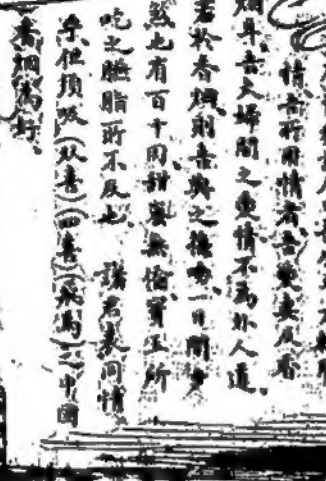 情、吾所用情者、吾愛妻及香
烟耳吾夫婦間之愛情不為外人道、
若於香烟則吾與之接吻一日間多
然也有百十回甜蜜無倫寶玉所
吃之臙脂所不及也 諸君表同情
乎但須吸(双喜)(四喜)(飛馬)之中國
香烟為好、